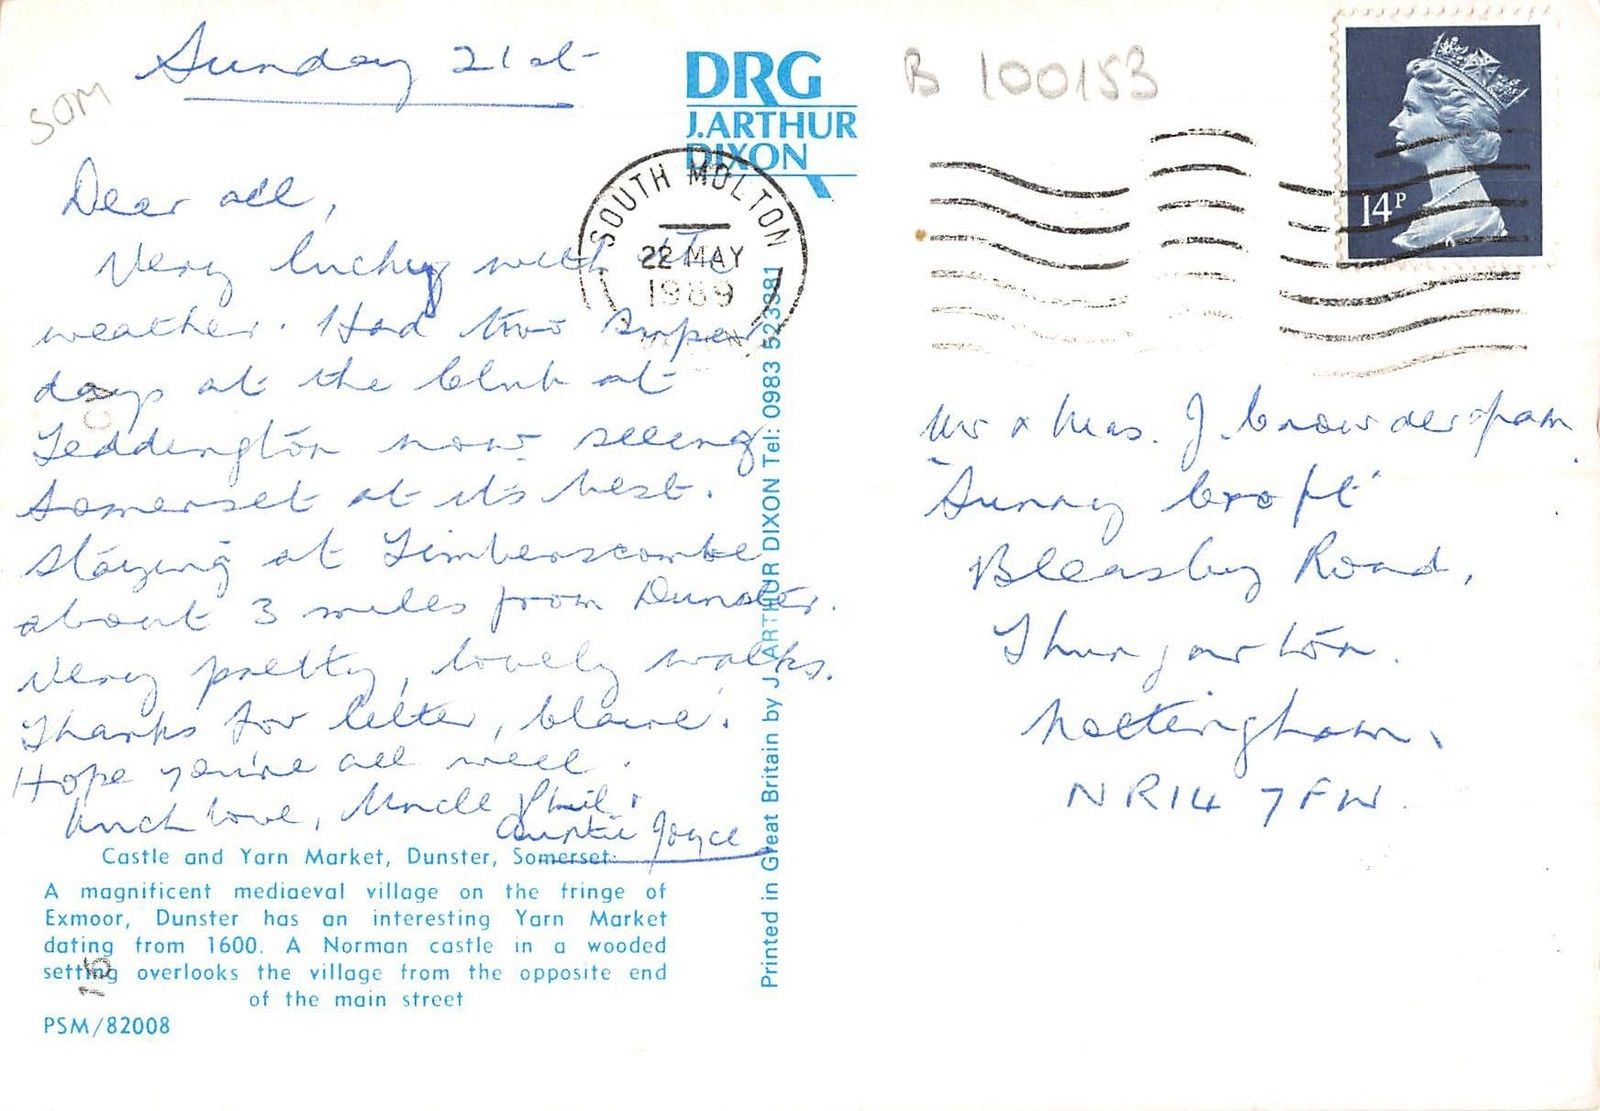 SOM
Sunday 21st
Dear all,
Very lucky with the
weather. Had two super
days at the club at
Teddington now seeing
Somerset at it's best.
Staying at Timberscombe
about 3 miles from Dunster.
Very pretty, lovely walks.
Thanks for letter, Claire.
Hope you're all well.
Much love, Uncle Phil &
Auntie Joyce
Castle and Yarn Market, Dunster, Somerset
A magnificent mediaeval village on the fringe of
Exmoor, Dunster has an interesting Yarn Market
dating from 1600. A Norman castle in a wooded
setting overlooks the village from the opposite end
of the main street
PSM/82008
DRG
J.ARTHUR
DIXON
SOUTH MOLTON
22 MAY
1989
Printed in Great Britain by J. ARTHUR DIXON Tel: 0983 523381
B 100153
14P
Mr & Mrs. J.
"Sunny Croft"
Bleasby Road,
Thurgarton.
Nottingham.
NR14 7FW.